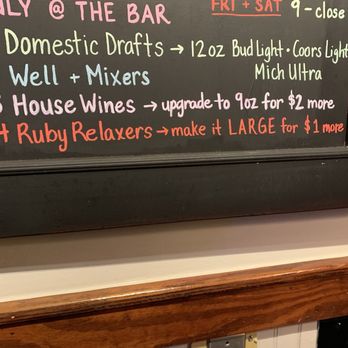 NLY @ THE BAR FRI + SAT 9 - close
Domestic Drafts → 12oz Bud Light • Coors Light
Well + Mixers Mich Ultra
5 House Wines → upgrade to 9oz for $2 more
4 Ruby Relaxers → make it LARGE for $1 more